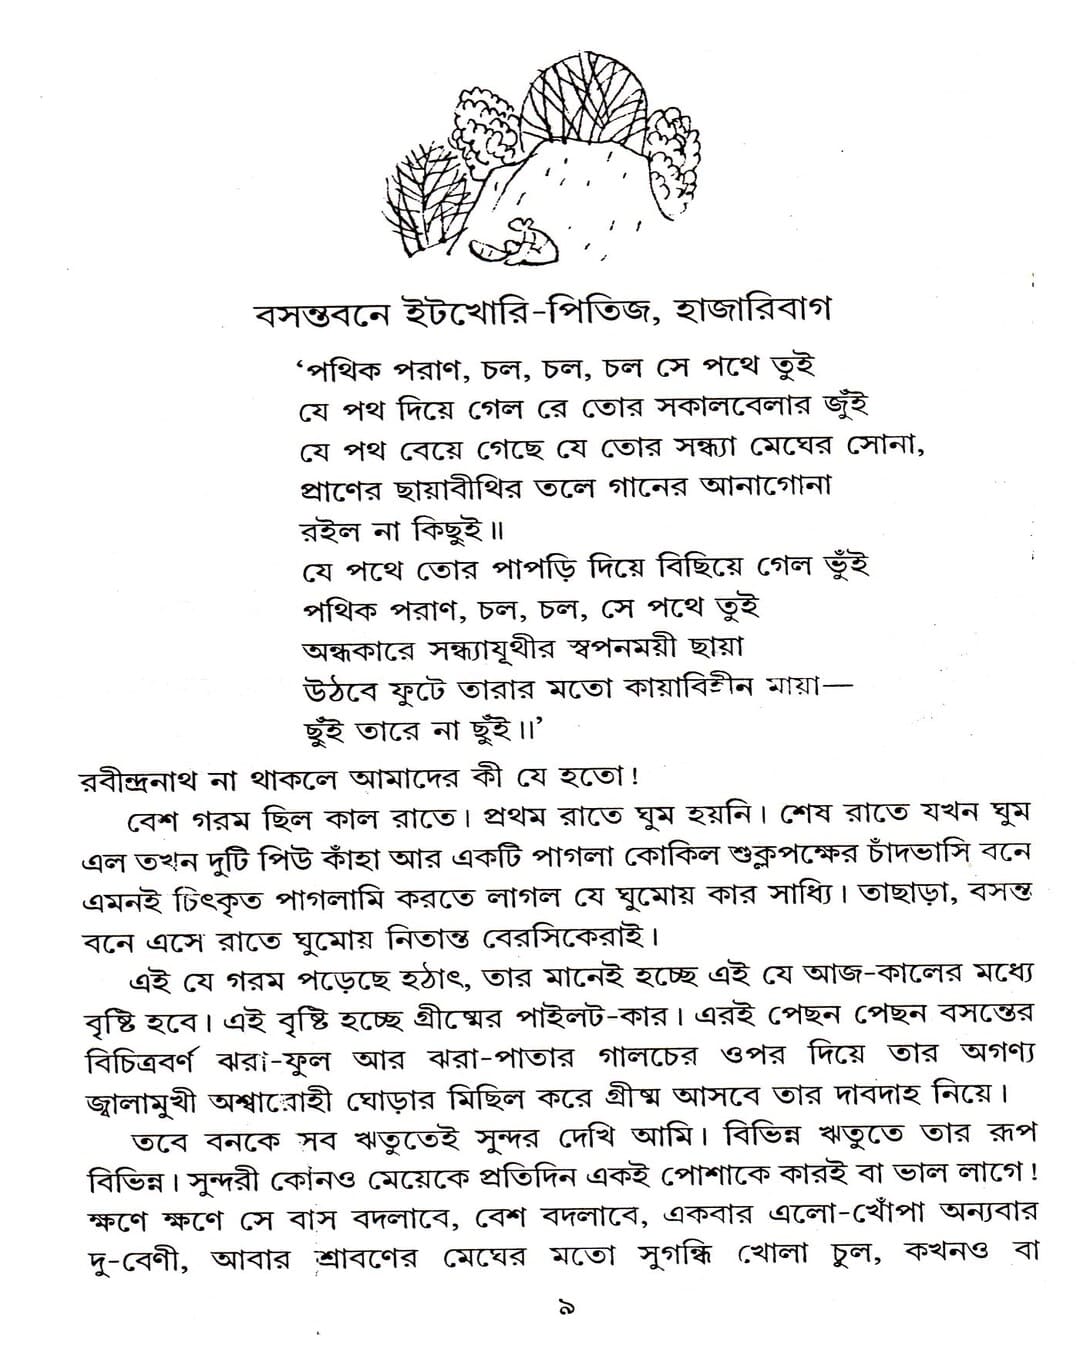 বসন্তবনে ইটখোরি-পিতিজ, হাজারিবাগ
‘পথিক পরাণ, চল, চল, চল সে পথে তুই
যে পথ দিয়ে গেল রে তোর সকালবেলার জুঁই
যে পথ বেয়ে গেছে যে তোর সন্ধ্যা মেঘের সোনা,
প্রাণের ছায়াবীথির তলে গানের আনাগোনা
রইল না কিছুই॥
যে পথে তোর পাপড়ি দিয়ে বিছিয়ে গেল ভুঁই
পথিক পরাণ, চল, চল, সে পথে তুই
অন্ধকারে সন্ধ্যাযূথীর স্বপনময়ী ছায়া
উঠবে ফুটে তারার মতো কায়াবিহীন মায়া—
ছুঁই তারে না ছুঁই॥’
রবীন্দ্রনাথ না থাকলে আমাদের কী যে হতো!
বেশ গরম ছিল কাল রাতে। প্রথম রাতে ঘুম হয়নি। শেষ রাতে যখন ঘুম
এল তখন দুটি পিউ কাঁহা আর একটি পাগলা কোকিল শুক্লপক্ষের চাঁদভাসি বনে
এমনই চিৎকৃত পাগলামি করতে লাগল যে ঘুমোয় কার সাধ্যি। তাছাড়া, বসন্ত
বনে এসে রাতে ঘুমোয় নিতান্ত বেরসিকেরাই।
এই যে গরম পড়েছে হঠাৎ, তার মানেই হচ্ছে এই যে আজ-কালের মধ্যে
বৃষ্টি হবে। এই বৃষ্টি হচ্ছে গ্রীষ্মের পাইলট-কার। এরই পেছন পেছন বসন্তের
বিচিত্রবর্ণ ঝরা-ফুল আর ঝরা-পাতার গালচের ওপর দিয়ে তার অগণ্য
জ্বালামুখী অশ্বারোহী ঘোড়ার মিছিল করে গ্রীষ্ম আসবে তার দাবদাহ নিয়ে।
তবে বনকে সব ঋতুতেই সুন্দর দেখি আমি। বিভিন্ন ঋতুতে তার রূপ
বিভিন্ন। সুন্দরী কোনও মেয়েকে প্রতিদিন একই পোশাকে কারই বা ভাল লাগে!
ক্ষণে ক্ষণে সে বাস বদলাবে, বেশ বদলাবে, একবার এলো-খোঁপা অন্যবার
দু-বেণী, আবার শ্রাবণের মেঘের মতো সুগন্ধি খোলা চুল, কখনও বা
৯